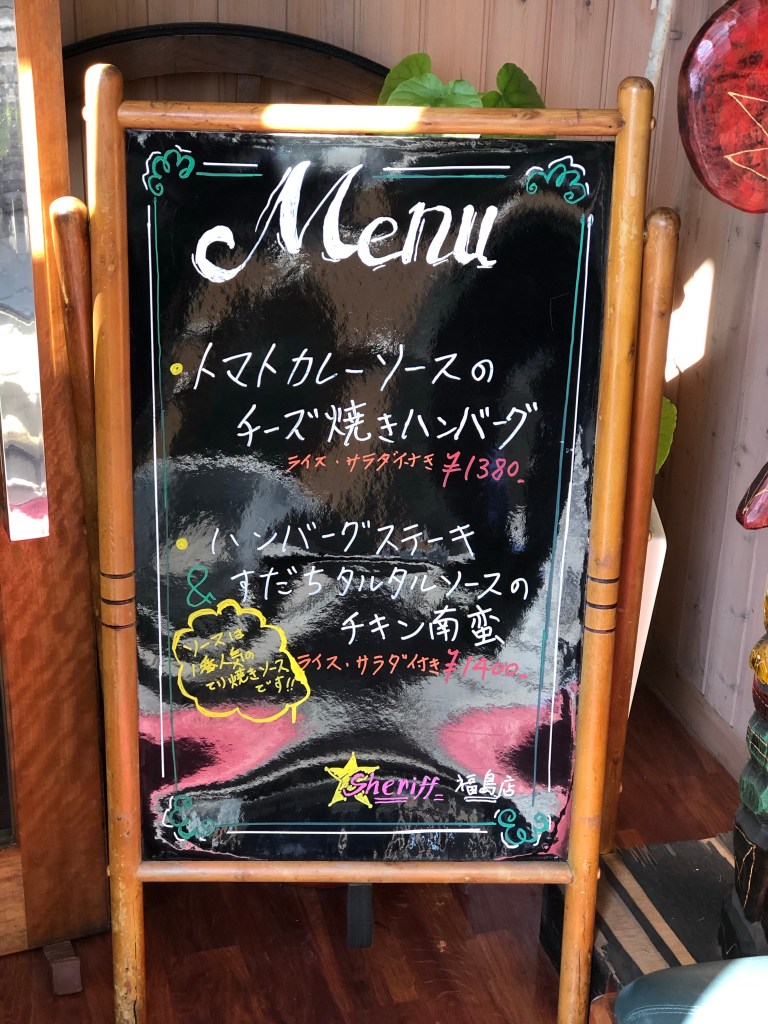 Menu
・トマトカレーソースの
チーズ焼きハンバーグ
ライス・サラダ付き ¥1380.
・ハンバーグステーキ
& すだちタルタルソースの
チキン南蛮
ライス・サラダ付き ¥1400.
ソースは
1番人気の
てり焼きソース
です!!
Sheriff 福島店